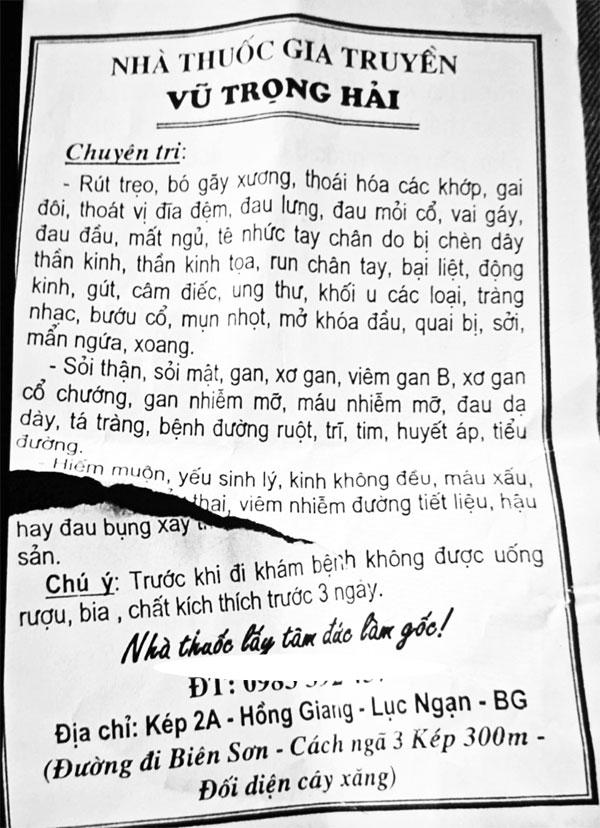 NHÀ THUỐC GIA TRUYỀN
VŨ TRỌNG HẢI
Chuyên trị:
- Rút trẹo, bó gãy xương, thoái hóa các khớp, gai
đôi, thoát vị đĩa đệm, đau lưng, đau mỏi cổ, vai gáy,
đau đầu, mất ngủ, tê nhức tay chân do bị chèn dây
thần kinh, thần kinh tọa, run chân tay, bại liệt, động
kinh, gút, câm điếc, ung thư, khối u các loại, tràng
nhạc, bướu cổ, mụn nhọt, mở khóa đầu, quai bị, sởi,
mẩn ngứa, xoang.
- Sỏi thận, sỏi mật, gan, xơ gan, viêm gan B, xơ gan
cổ chướng, gan nhiễm mỡ, máu nhiễm mỡ, đau dạ
dày, tá tràng, bệnh đường ruột, trĩ, tim, huyết áp, tiểu
đường.
- Hiếm muộn, yếu sinh lý, kinh không đều, máu xấu,
thai, viêm nhiễm đường tiết liệu, hậu
hay đau bụng xảy
sản.
Chú ý: Trước khi đi khám bệnh không được uống
rượu, bia , chất kích thích trước 3 ngày.
Nhà thuốc lấy tâm đức làm gốc!
ĐT: 0985
Địa chỉ: Kép 2A - Hồng Giang - Lục Ngạn - BG
(Đường đi Biên Sơn - Cách ngã 3 Kép 300m -
Đối diện cây xăng)